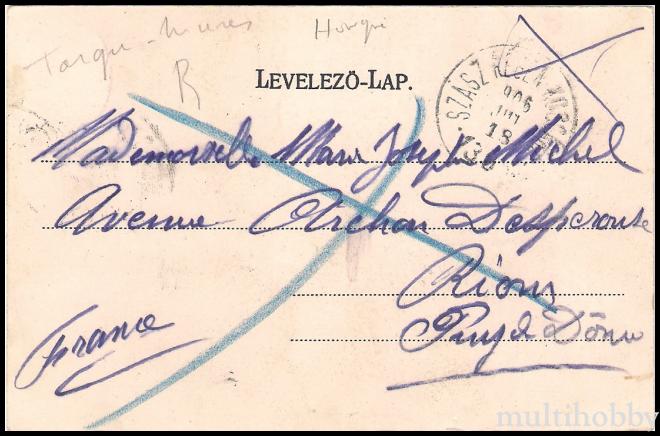 Targu-Mures
Hongrie
R
LEVELEZŐ-LAP.
SZÁSZ RÉGEN
906
18
Mademoiselle Marie Joseph Michel
Avenue Archon Desperouse
Riom
Puy de Dôme
France
multihobby